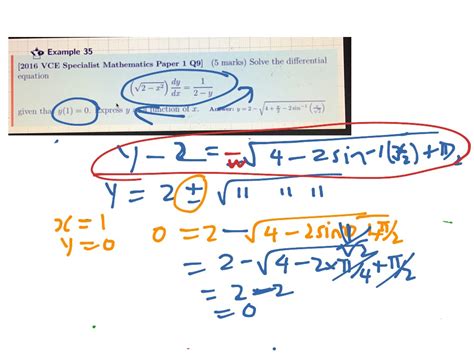 Example 35
[2016 VCE Specialist Mathematics Paper 1 Q9] (5 marks) Solve the differential
equation
(√2 − x²) dy/dx = 1/(2 − y)
given that y(1) = 0. Express y as a function of x. Answer: y = 2 − √(4 + π/2 − 2 sin⁻¹(x/√2))
y − 2 = −√(4 − 2sin⁻¹(x/√2) + π
y = 2 ± √ " " "
x = 1
y = 0
0 = 2 − √(4 − 2sin 1/√2 + π/2
= 2 − √(4 − 2×π/4 + π/2
= 2 − 2
= 0